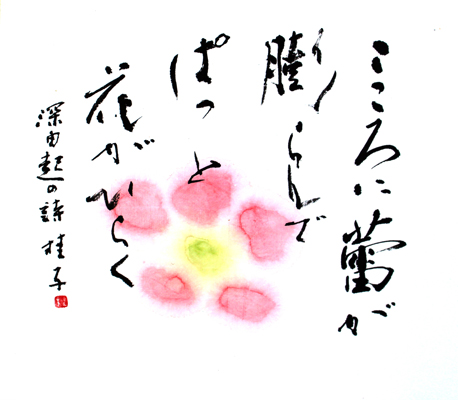 こころに蕾が
膨らんで
ぱっと
花がひらく
深由起の詩 桂子